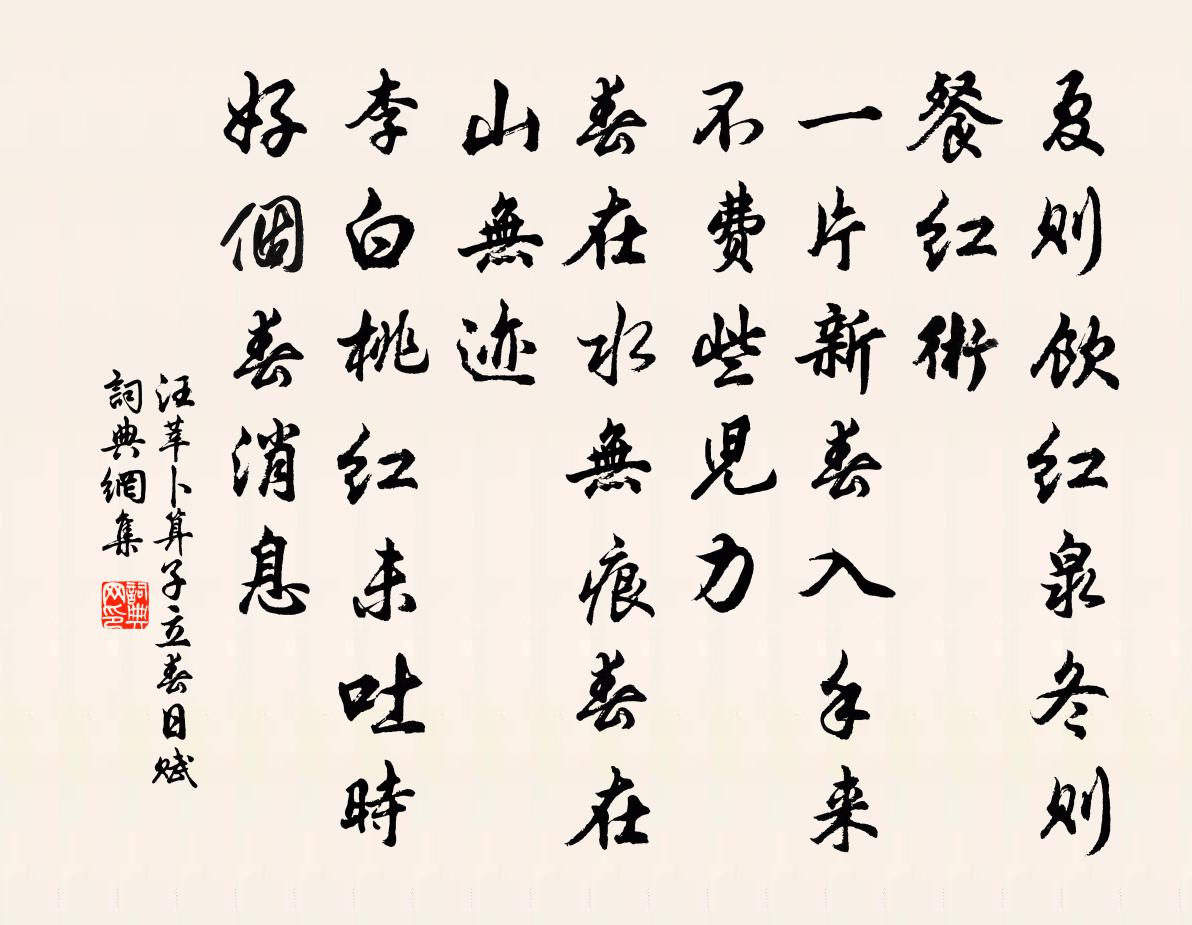 夏則飲红泉冬則
餐红術
一片新春入手来
不費些児力
春在水無痕春在
山無迹
李白桃红未吐時
好個春消息
汪莘卜算子立春日赋
詞典網集
詞典网印